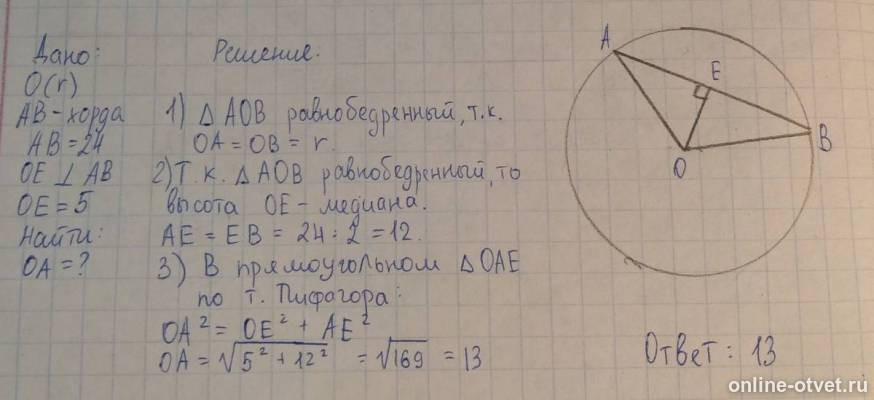 Дано:
O(r)
AB - хорда
AB = 24
OE ⊥ AB
OE = 5
Найти:
OA = ?
Решение.
1) △ AOB равнобедренный, т.к.
OA = OB = r.
2) Т.к. △ AOB равнобедренный, то
высота OE - медиана.
AE = EB = 24 : 2 = 12.
3) В прямоугольном △ OAE
по т. Пифагора:
OA² = OE² + AE²
OA = √5² + 12² = √169 = 13
A
E
B
O
Ответ: 13
online-otvet.ru